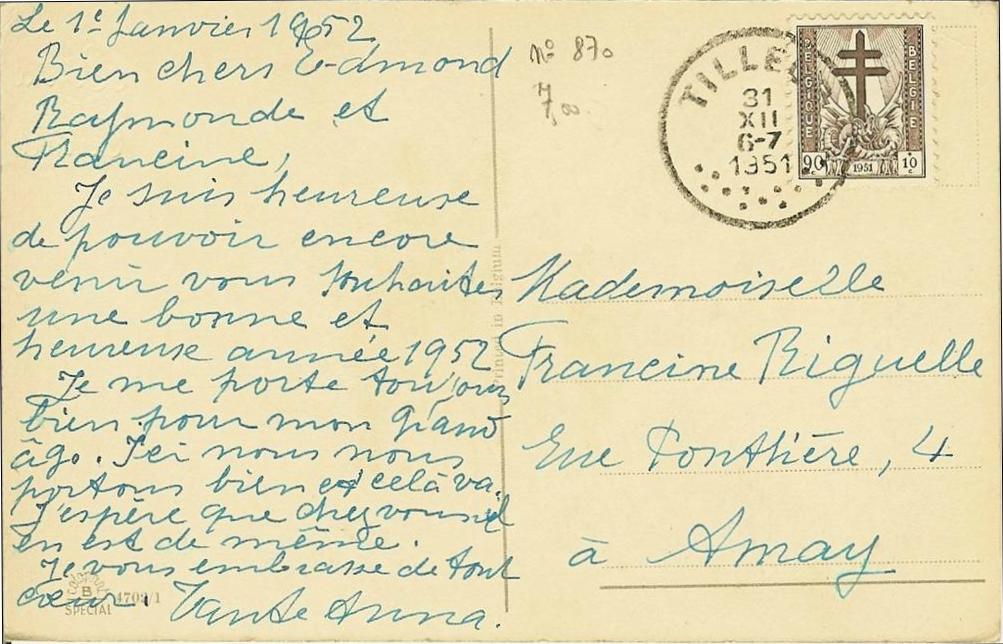 Le 1e Janvier 1952
Bien chers Edmond
Raymonde et
Francine,
Je suis heureuse
de pouvoir encore
venir vous souhaiter
une bonne et
heureuse année 1952
Je me porte toujours
bien pour mon grand
âge. Ici nous nous
portons bien et celà va.
J'espère que chez vous il
en est de même.
Je vous embrasse de tout
coeur. Tante Anna.
B
SPECIAL
4709/1
Printed in Belgium
No 870
7,00
TILLEU
31
XII
6-7
1951
BELGIQUE
BELGIE
90c
1951
10c
Mademoiselle
Francine Riguelle
Rue Ponthière, 4
à Amay